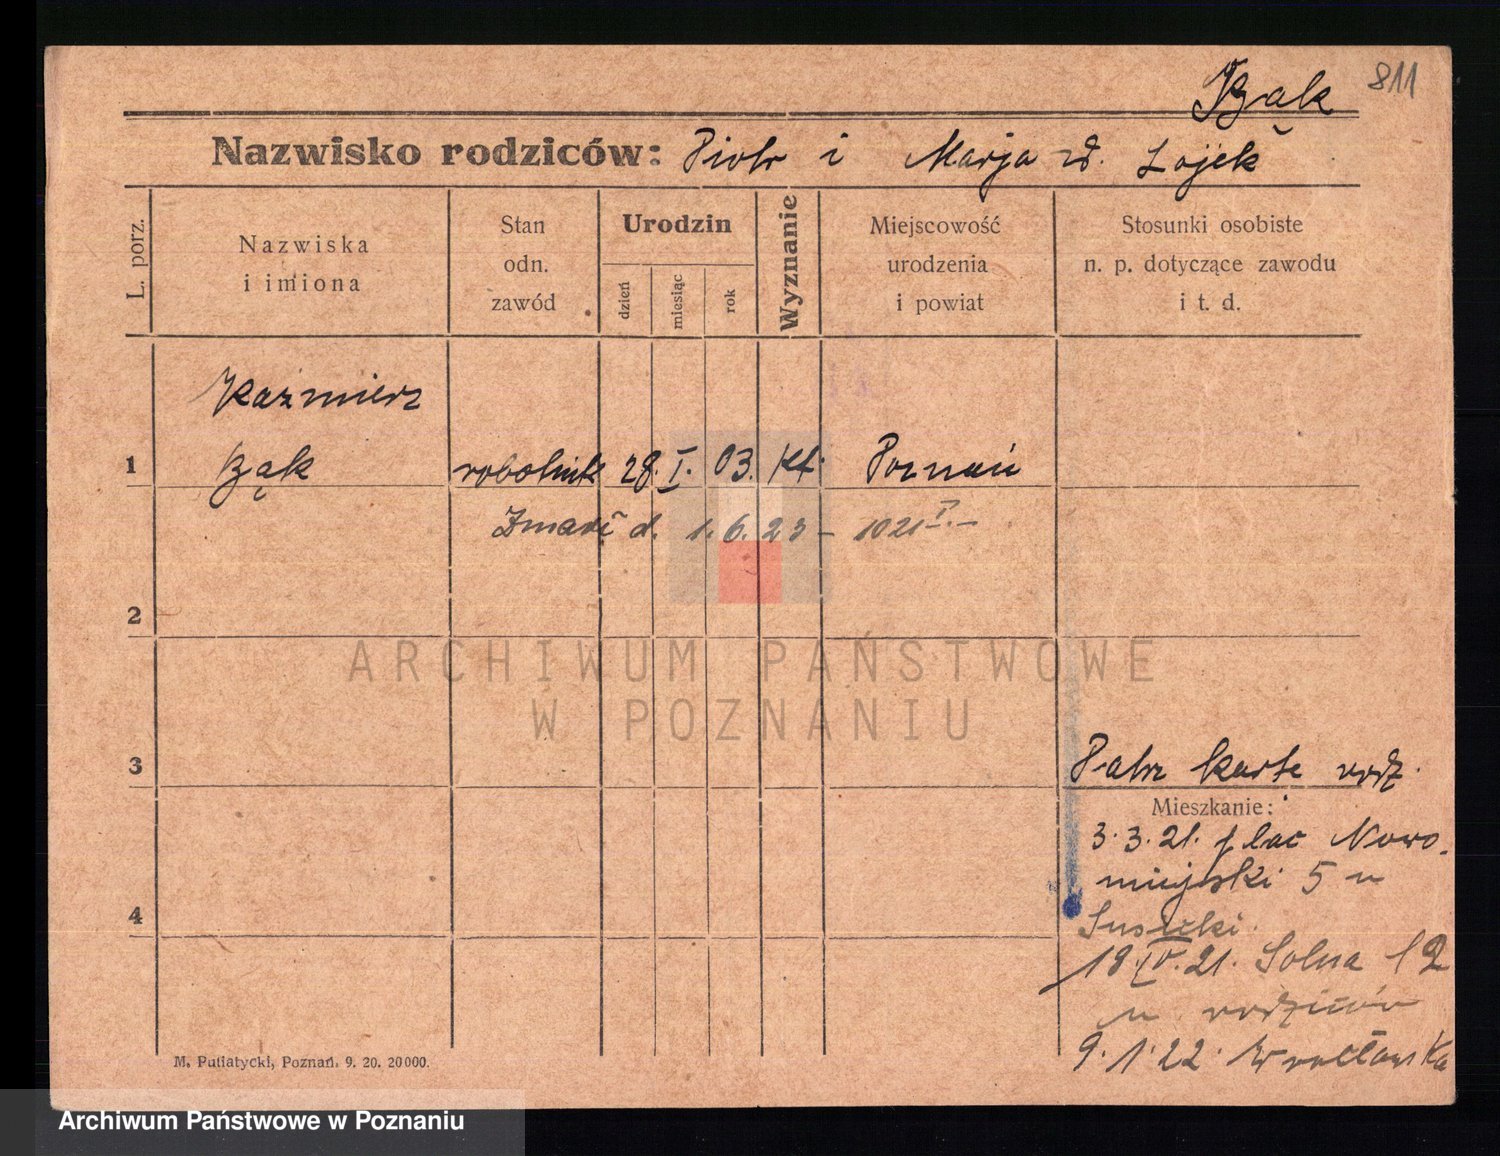 Bąk 811
Nazwisko rodziców: Piotr i Marja zd. Łojek
L. porz.
Nazwiska
i imiona
Stan
odn.
zawód
Urodzin
dzień
miesiąc
rok
Wyznanie
Miejscowość
urodzenia
i powiat
Stosunki osobiste
n. p. dotyczące zawodu
i t. d.
Kaźmierz
1 Bąk robotnik 28. I. 03. Kt. Poznań
Zmarł d. 1. 6. 23 - 1021
2
ARCHIWUM PAŃSTWOWE
W POZNANIU
3 Patrz kartę rodz.
Mieszkanie:
3. 3. 21. plac Nowo-
miejski 5 u
4
18. IV. 21. Solna 12
u rodziców
9. 1. 22. Wrocławska
M. Putiatycki, Poznań. 9. 20. 20000.
Archiwum Państwowe w Poznaniu